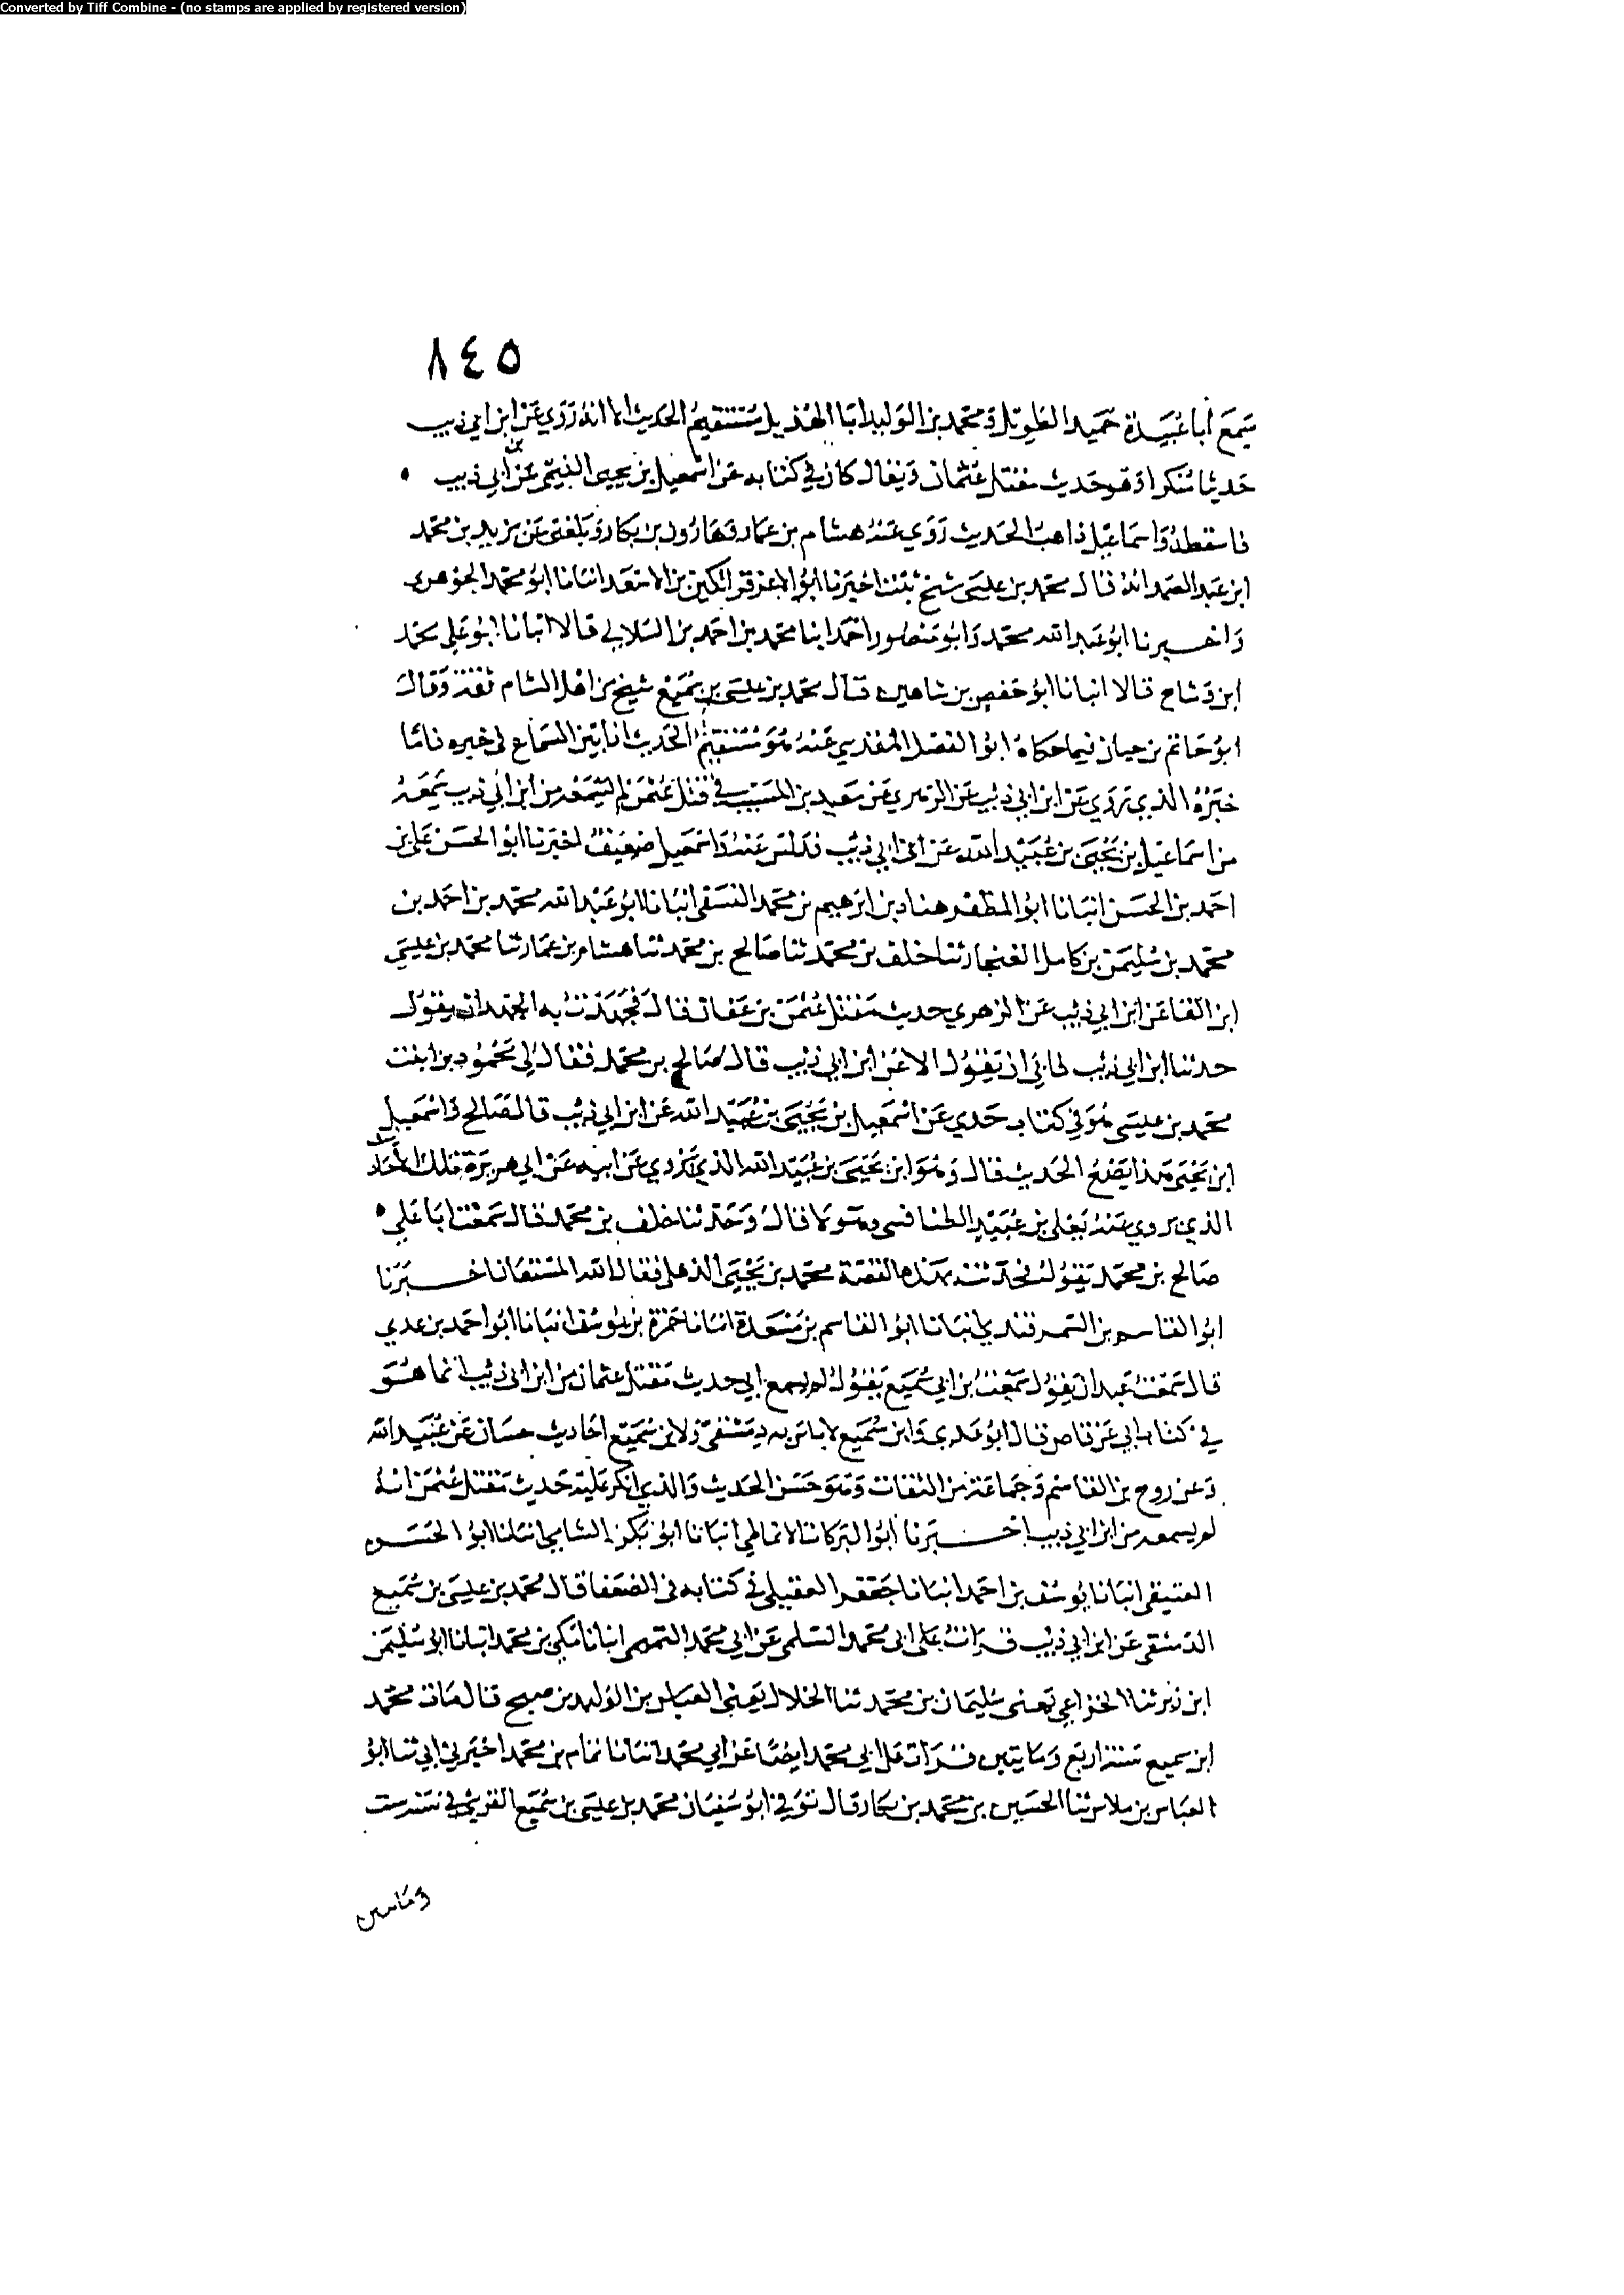 Converted by Tiff Combine - (no stamps are applied by registered version)
٨٤٥
سَمِعَ أبا عُبَيدة حميد الطويل ومحمد بن الوليد ابا الهذيل مستقيم الحديث الا انه روى عن ابن ابي ذيب
حديثا منكرا وهو حديث مقتل عثمان ويقال كان في كتابه عن اسمعيل بن يحيى التيمي عن ابن ابي ذيب
فاسقطه واسماعيل ذاهب الحديث روى عنه هشام بن عمار وهارون بن بكار وبلغني عن يزيد بن محمد
ابن عبد الصمد انه قال محمد بن عيسى شيخ ثبت اخبرنا ابو الاعز قراتكين بن الاسعد انبانا ابو محمد الجوهري
واخبرنا ابو عبد الله محمد وابو منصور احمد ابنا محمد بن احمد بن السلال قالا انبانا ابو علي محمد
ابن وشاح قالا انبانا ابو حفص بن شاهين قال محمد بن عيسى بن سميع شيخ من اهل الشام ثقة وقال
ابو حاتم بن حبان فيما حكاه ابو الفضل المقدسي عنه هو مستقيم الحديث اذا بين السماع في خبره فاما
خبره الذي روى عن ابن ابي ذئب عن الزهري عن سعيد بن المسيب في قتل عثمن لم يسمعه من ابن ابي ذيب سمعه
من اسماعيل بن يحيى بن عبيد الله عن ابن ابي ذئب فدلس عنه واسمعيل ضعيف اخبرنا ابو الحسن علي بن
احمد بن الحسن انبانا ابو المظفر هناد بن ابرهيم بن محمد النسفي انبانا ابو عبد الله محمد بن احمد بن
محمد بن سليمن بن كامل الغنجار ثنا خلف بن محمد ثنا صالح بن محمد ثنا هشام بن عمار ثنا محمد بن عيسى
ابن القاسم عن ابن ابي ذئب عن الزهري حديث مقتل عثمن بن عفان قال فجهدت به الجهد ان يقول
حدثنا ابن ابي ذئب فابى ان يقول الا عن ابن ابي ذئب قال صالح بن محمد فقال لي محمود بن ابنت
محمد بن عيسى هو في كتاب جدي عن اسمعيل بن يحيى بن عبيد الله عن ابن ابي ذئب قال صالح واسمعيل
ابن يحيى هذا يضع الحديث قال وهو ابن يحيى بن عبيد الله الذي يروي عن ابيه عن ابي هريرة تلك الاحاديث
الذي يروي عنه يعلى بن عبيد الطنافسي قال وحدثنا خلف بن محمد قال سمعت ابا علي
صالح بن محمد يقول فحدثت بهذه القصة محمد بن يحيى الذهلي فقال الله المستعان اخبرنا
ابو القاسم بن السمرقندي انبانا ابو القاسم بن مسعدة انبانا حمزة بن يوسف انبانا ابو احمد بن عدي
قال سمعت عبدان يقول سمعت ابن ابي سميع يقول لم يسمع ابي حديث مقتل عثمان من ابن ابي ذئب انما هو
في كتاب ابي عن قاص قال ابو عدي وابن سميع لا باس به دمشقي ولابن سميع احاديث حسان عن عبيد الله
وعن روح بن القاسم وجماعة من الثقات وهو حسن الحديث والذي انكر عليه حديث مقتل عثمن انه
لم يسمعه من ابن ابي ذيب اخبرنا ابو البركات الانماطي انبانا ابو بكر الشامي انبانا ابو الحسن
العتيقي انبانا يوسف بن احمد انبانا جعفر العقيلي في كتابه في الضعفا قال محمد بن عيسى بن سميع
الدمشقي عن ابن ابي ذيب قرات على ابي محمد السلمي عن ابي محمد التميمي انبانا مكي بن محمد انبانا ابو سليمن
ابن زبر ثنا الخزاعي يعني سليمان بن محمد ثنا الخلال يعني العباس بن الوليد بن صبح قال مات محمد
ابن سميع سنة اربع ومايتين قرات على ابي محمد ايضا عن ابي محمد انبانا تمام بن محمد اخبرني ابي ثنا ابو
العباس بن ملاس ثنا الحسن بن محمد بن بكار قال توفي ابو سفيان محمد بن عيسى بن سميع القرشي في سنة ست
ومايتين